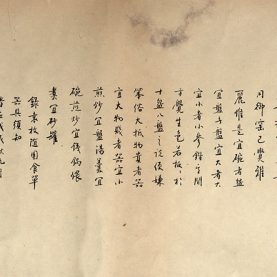 用御窑已覺雅
麗惟是宜碗者盌
宜盤者盤宜大者大
宜小者小參錯其間
方覺生色若板板於
十盤八盤之說便嫌
笨俗大抵物貴者器
宜大物賤者器宜小
煎炒宜盤湯羹宜
碗煎炒宜鐵鍋煨
煮宜砂罐
錄袁枚隨園食單
器具須知